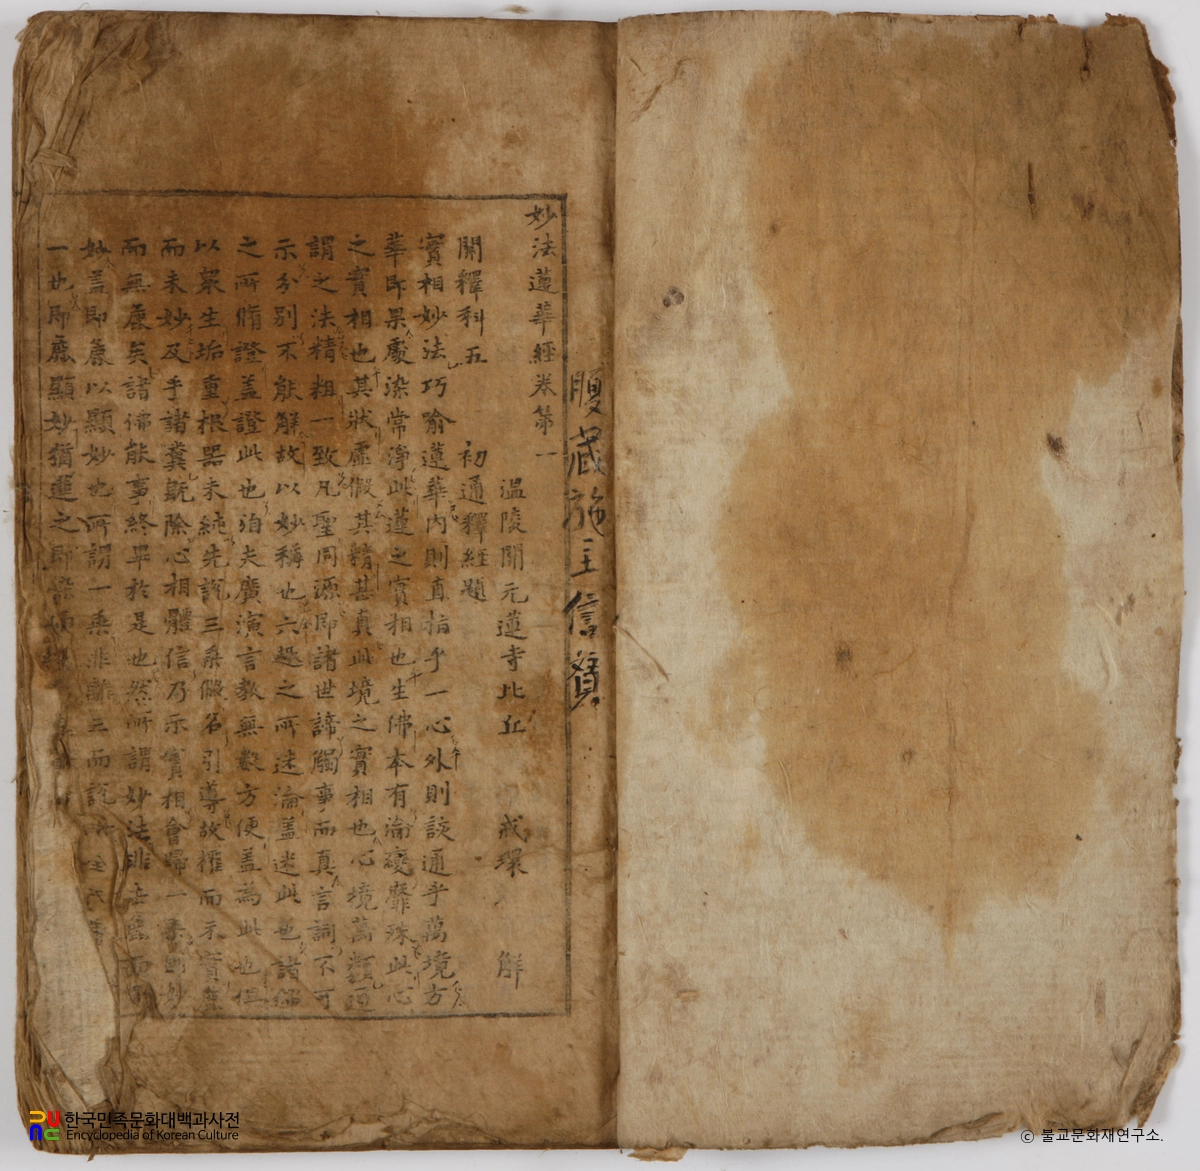 腹藏施主信寶
妙法蓮華經卷第一
溫陵開元蓮寺比丘 戒環 解
開釋科五 初通釋經題
實相妙法巧喩蓮華內則直指乎一心外則該通乎萬境方
華即果處染常淨此蓮之實相也生佛本有淪變靡殊此心
之實相也其狀虛假其精甚眞此境之實相也心境萬類通
謂之法精粗一致凡聖同源即諸世諦觸事而眞言詞不可
示分別不能解故以妙稱也六趣之所迷淪盖迷此也諸佛
之所脩證盖證此也洎夫廣演言敎無數方便盖為此也但
以衆生垢重根器未純先說三乘假名引導故權而未實麁
而未妙及乎諸糞旣除心相體信乃示實相會歸一乘則妙
而無麁矣諸佛能事終畢於是也然所謂妙法非去麁而取
妙盖即麁以顯妙也所謂一乘非離三而說
一也即麁顯妙猶蓮之即染而
한국민족문화대백과사전
Encyclopedia of Korean Culture
ⓒ 불교문화재연구소.